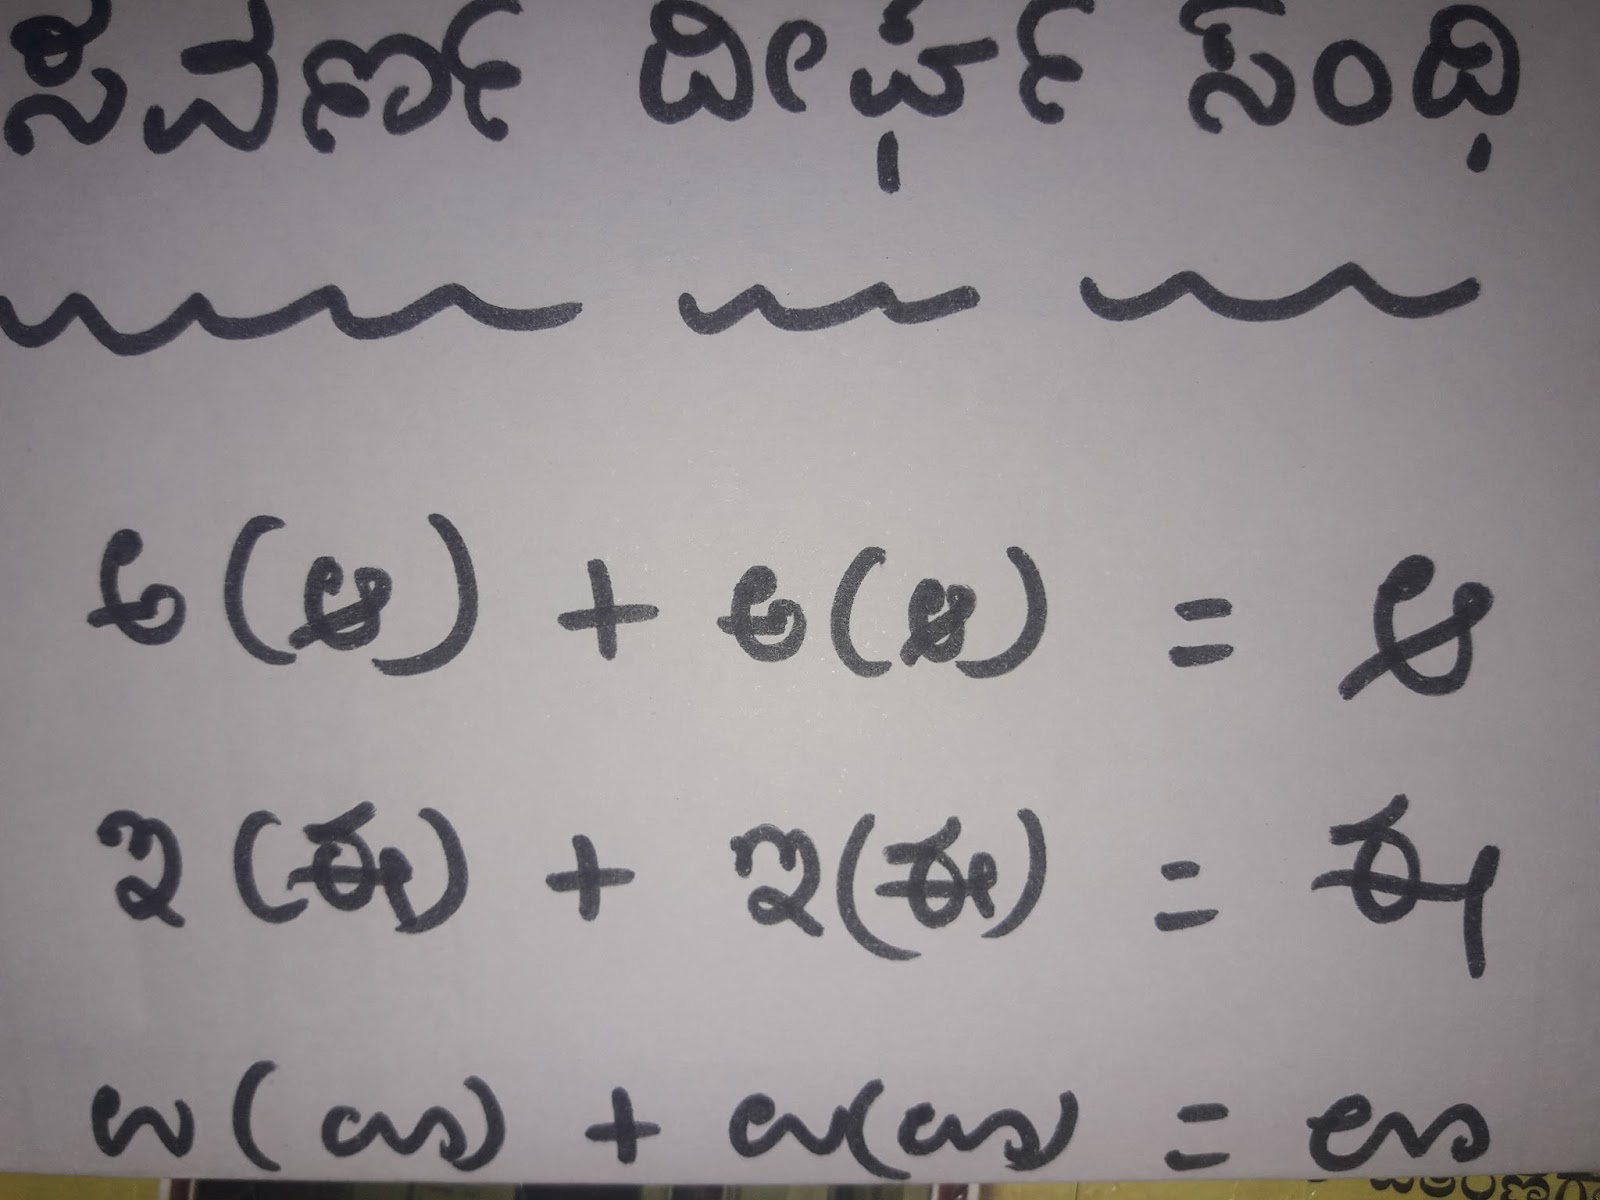 ಸವರ್ಣ ದೀರ್ಘ ಸಂಧಿ
ಅ (ಆ) + ಅ (ಆ) = ಆ
ಇ (ಈ) + ಇ (ಈ) = ಈ
ಉ (ಊ) + ಉ (ಊ) = ಊ